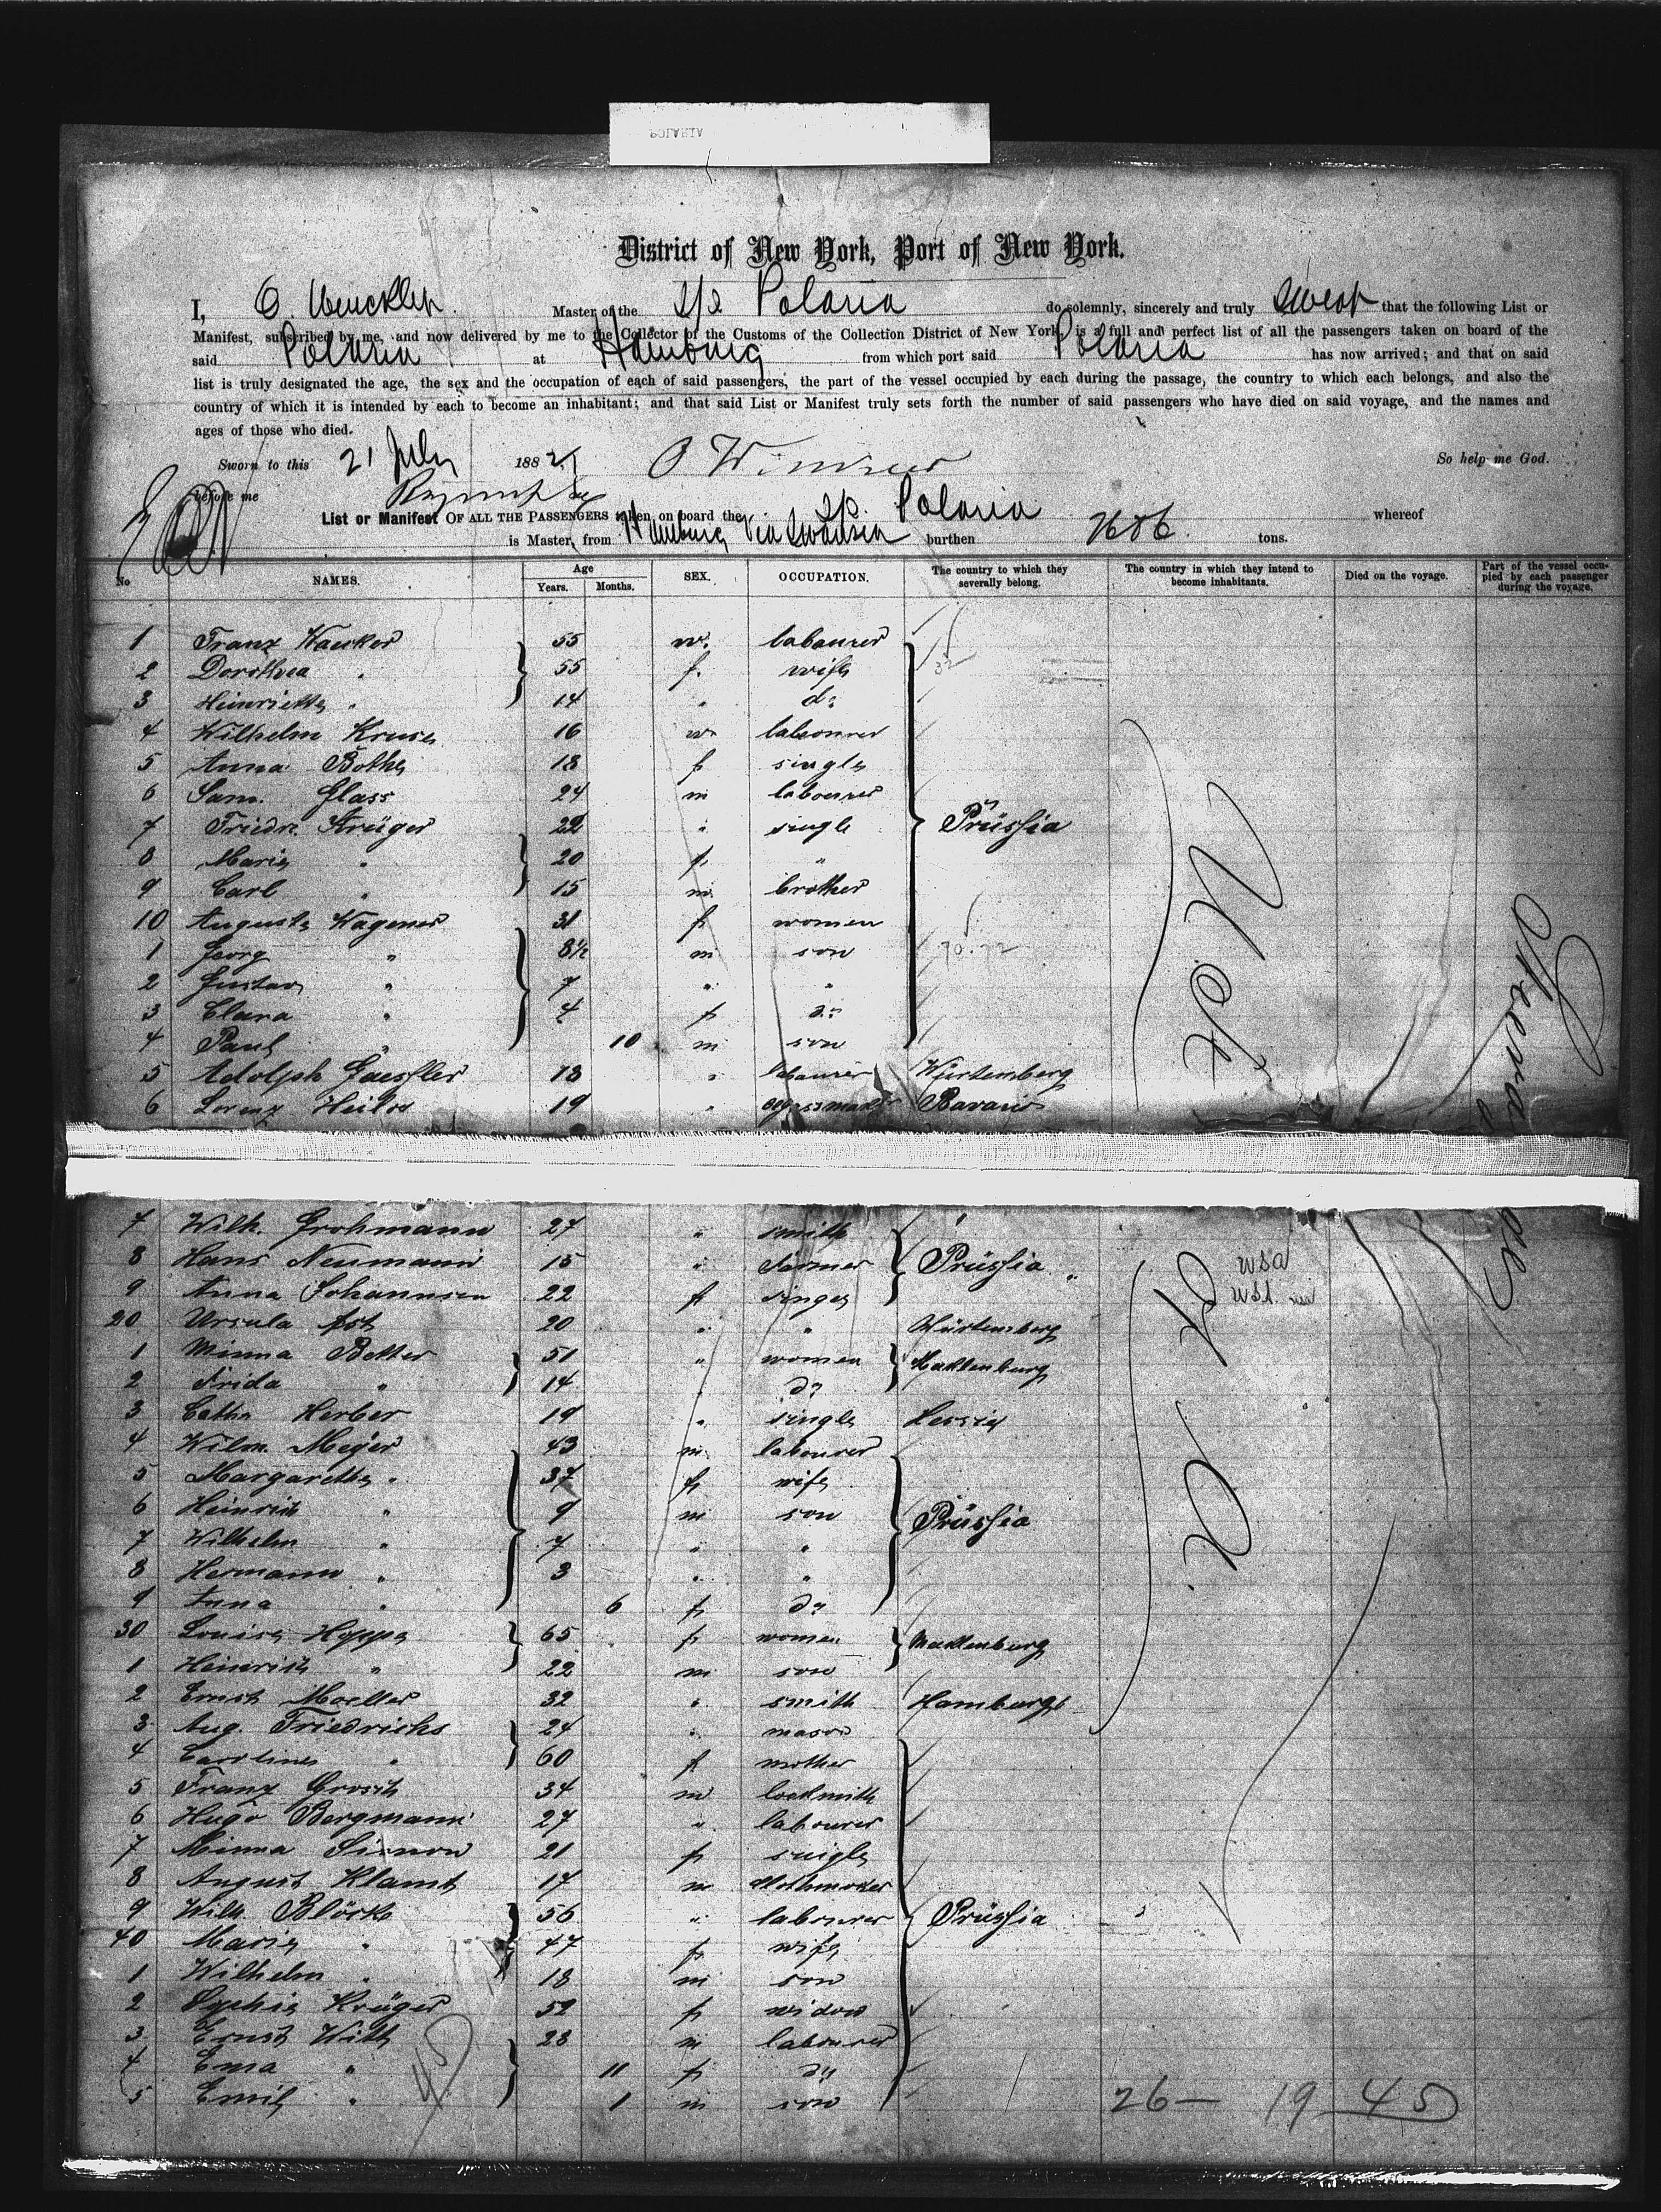 POLARIA
District of New York, Port of New York.
I, Master of the S/S Polaria do solemnly, sincerely and truly swear that the following List or
Manifest, subscribed by me, and now delivered by me to the Collector of the Customs of the Collection District of New York, is a full and perfect list of all the passengers taken on board of the
said Polaria at Hamburg from which port said Polaria has now arrived; and that on said
list is truly designated the age, the sex and the occupation of each of said passengers, the part of the vessel occupied by each during the passage, the country to which each belongs, and also the
country of which it is intended by each to become an inhabitant; and that said List or Manifest truly sets forth the number of said passengers who have died on said voyage, and the names and
ages of those who died.
Sworn to this 21 July 188 So help me God.
before me
List or Manifest OF ALL THE PASSENGERS taken on board the Polaria whereof
is Master, from Hamburg via Swansea burthen 2686 tons.
No NAMES. Age Years. Months. SEX. OCCUPATION. The country to which they severally belong. The country in which they intend to become inhabitants. Died on the voyage. Part of the vessel occupied by each passenger during the voyage.
1 Franz 55 m. labourer
2 Dorothea " 55 f. wife
3 Henriette " 14 " d:
4 Wilhelm Kruse 16 m labourer
5 Anna Bothe 18 f single
6 Sam. Glass 24 m labourer
7 Friedr. Krüger 22 " single Prüssia
8 Marie " 20 f "
9 Carl " 15 m brother
10 Auguste Wagener 31 f women
1 Georg " 8½ m son 70.72
2 Gustav " 7 " "
3 Clara " 4 f d:
4 Paul " 10 m son
5 Adolph 18 " labourer Würtemberg
6 Lorenz 19 " Bavaria
7 Wilh. Grohmann 27 " smith
8 Hans Neumann 15 " farmer Prüssia "
9 Anna Johannsen 22 f
20 Ursula Ast 20 " " Würtemberg
1 Minna Better 51 " women Macklenburg
2 Frida " 14 d:
3 Cath. Herber 19 " single
4 Wilm. Meyer 43 m labourer
5 Margarethe " 37 f wife
6 Heinrich " 9 m son Prüssia
7 Wilhelm " 7 " "
8 Hermann " 3 " "
9 Anna " 6 f d:
30 Louise Hoppe 65 f women Macklenburg
1 Heinrich " 22 m son
2 Ernst Moeller 32 " smith Hamburg
3 Aug. Friedrichs 24 " mason
4 Caroline " 60 f mother
5 Franz Grosch 34 m locksmith
6 Hugo Bergmann 27 " labourer
7 Minna Simon 21 f single
8 August Klamt 17 m clothmaker
9 Wilh. 56 " labourer Prüssia
40 Marie " 47 f wife
1 Wilhelm " 18 m son
2 Sophie Krüger 52 f widow
3 Ernst Witt 28 m labourer
4 Ema " 11 f d:
5 Emil " 1 m son
26— 19 45